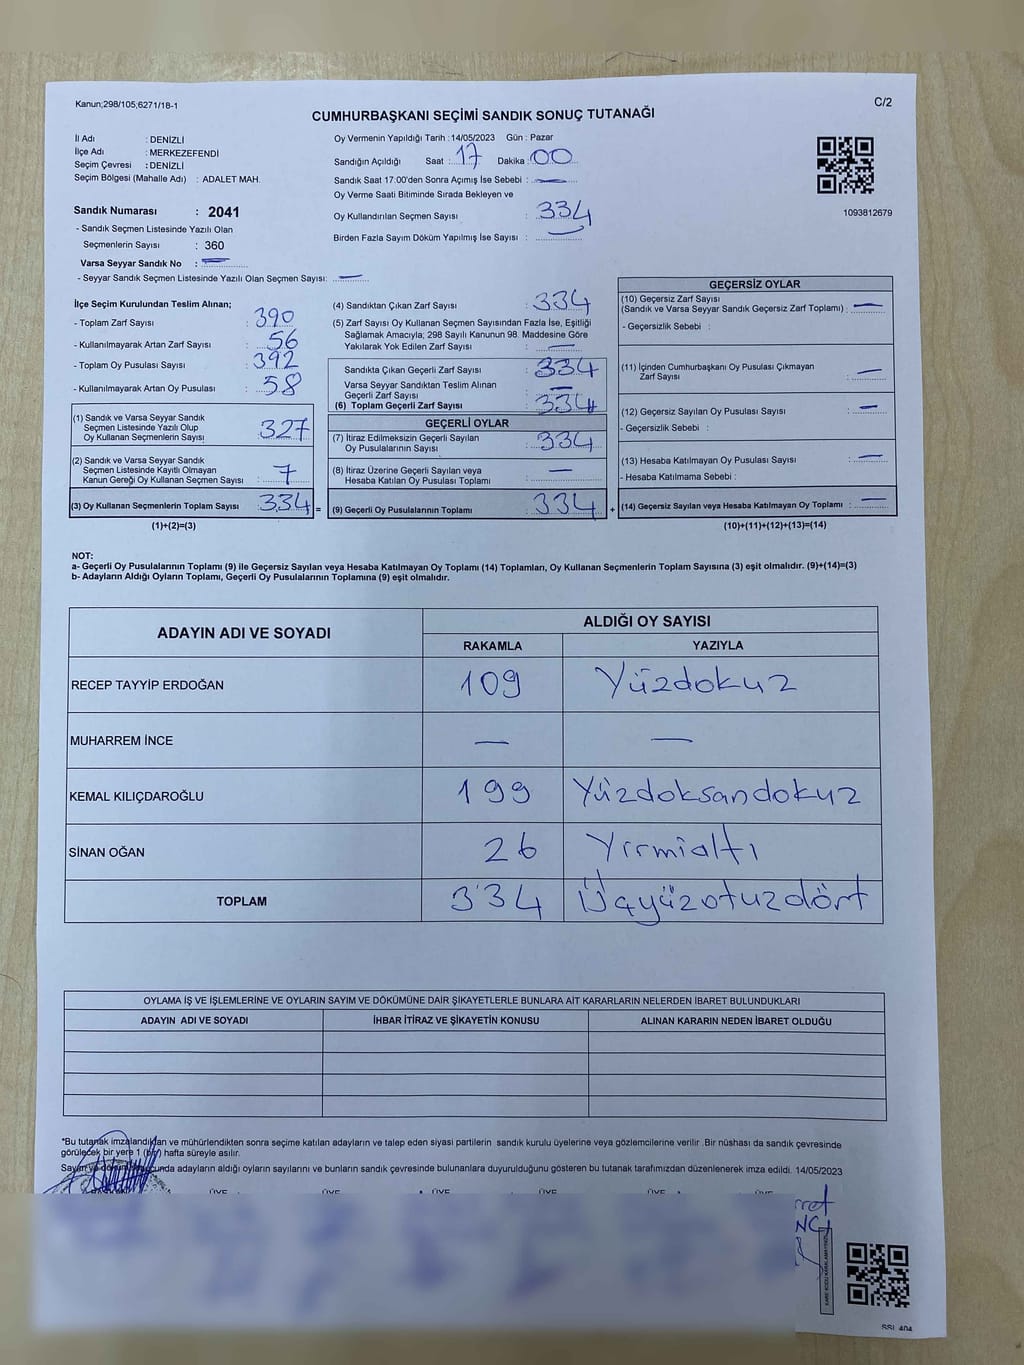 Kanun;298/105;6271/18-1
C/2
CUMHURBAŞKANI SEÇİMİ SANDIK SONUÇ TUTANAĞI
İl Adı : DENİZLİ
İlçe Adı : MERKEZEFENDİ
Seçim Çevresi : DENİZLİ
Seçim Bölgesi (Mahalle Adı) : ADALET MAH.
Sandık Numarası : 2041
- Sandık Seçmen Listesinde Yazılı Olan
Seçmenlerin Sayısı : 360
Varsa Seyyar Sandık No : —
- Seyyar Sandık Seçmen Listesinde Yazılı Olan Seçmen Sayısı: —
Oy Vermenin Yapıldığı Tarih : 14/05/2023 Gün : Pazar
Sandığın Açıldığı Saat : 17 Dakika : 00
Sandık Saat 17:00'den Sonra Açımış İse Sebebi : —
Oy Verme Saati Bitiminde Sırada Bekleyen ve
Oy Kullandırılan Seçmen Sayısı : 334
Birden Fazla Sayım Döküm Yapılmış İse Sayısı : —
1093812679
İlçe Seçim Kurulundan Teslim Alınan;
- Toplam Zarf Sayısı : 390
- Kullanılmayarak Artan Zarf Sayısı : 56
- Toplam Oy Pusulası Sayısı : 392
- Kullanılmayarak Artan Oy Pusulası : 58
(1) Sandık ve Varsa Seyyar Sandık
Seçmen Listesinde Yazılı Olup
Oy Kullanan Seçmenlerin Sayısı 327
(2) Sandık ve Varsa Seyyar Sandık
Seçmen Listesinde Kayıtlı Olmayan
Kanun Gereği Oy Kullanan Seçmen Sayısı : 7
(3) Oy Kullanan Seçmenlerin Toplam Sayısı : 334 =
(1)+(2)=(3)
(4) Sandıktan Çıkan Zarf Sayısı : 334
(5) Zarf Sayısı Oy Kullanan Seçmen Sayısından Fazla İse, Eşitliği
Sağlamak Amacıyla; 298 Sayılı Kanunun 98. Maddesine Göre
Yakılarak Yok Edilen Zarf Sayısı : —
Sandıkta Çıkan Geçerli Zarf Sayısı : 334
Varsa Seyyar Sandıktan Teslim Alınan
Geçerli Zarf Sayısı : —
(6) Toplam Geçerli Zarf Sayısı : 334
GEÇERLİ OYLAR
(7) İtiraz Edilmeksizin Geçerli Sayılan
Oy Pusulalarının Sayısı : 334
(8) İtiraz Üzerine Geçerli Sayılan veya
Hesaba Katılan Oy Pusulası Toplamı : —
(9) Geçerli Oy Pusulalarının Toplamı : 334 +
GEÇERSİZ OYLAR
(10) Geçersiz Zarf Sayısı
(Sandık ve Varsa Seyyar Sandık Geçersiz Zarf Toplamı) : —
- Geçersizlik Sebebi :
(11) İçinden Cumhurbaşkanı Oy Pusulası Çıkmayan
Zarf Sayısı : —
(12) Geçersiz Sayılan Oy Pusulası Sayısı : —
- Geçersizlik Sebebi :
(13) Hesaba Katılmayan Oy Pusulası Sayısı : —
- Hesaba Katılmama Sebebi :
(14) Geçersiz Sayılan veya Hesaba Katılmayan Oy Toplamı : —
(10)+(11)+(12)+(13)=(14)
NOT:
a- Geçerli Oy Pusulalarının Toplamı (9) ile Geçersiz Sayılan veya Hesaba Katılmayan Oy Toplamı (14) Toplamları, Oy Kullanan Seçmenlerin Toplam Sayısına (3) eşit olmalıdır. (9)+(14)=(3)
b- Adayların Aldığı Oyların Toplamı, Geçerli Oy Pusulalarının Toplamına (9) eşit olmalıdır.
ADAYIN ADI VE SOYADI ALDIĞI OY SAYISI
RAKAMLA YAZIYLA
RECEP TAYYİP ERDOĞAN 109 Yüzdokuz
MUHARREM İNCE — —
KEMAL KILIÇDAROĞLU 199 Yüzdoksandokuz
SİNAN OĞAN 26 Yirmialtı
TOPLAM 334 Üçyüzotuzdört
OYLAMA İŞ VE İŞLEMLERİNE VE OYLARIN SAYIM VE DÖKÜMÜNE DAİR ŞİKAYETLERLE BUNLARA AİT KARARLARIN NELERDEN İBARET BULUNDUKLARI
ADAYIN ADI VE SOYADI İHBAR İTİRAZ VE ŞİKAYETİN KONUSU ALINAN KARARIN NEDEN İBARET OLDUĞU
*Bu tutanak imzalandıktan ve mühürlendikten sonra seçime katılan adayların ve talep eden siyasi partilerin sandık kurulu üyelerine veya gözlemcilerine verilir .Bir nüshası da sandık çevresinde
görülecek bir yere 1 (bir) hafta süreyle asılır.
adayların aldığı oyların sayılarını ve bunların sandık çevresinde bulunanlara duyurulduğunu gösteren bu tutanak tarafımızdan düzenlenerek imza edildi. 14/05/2023
ÜYE ÜYE ÜYE ÜYE ÜYE ÜYE